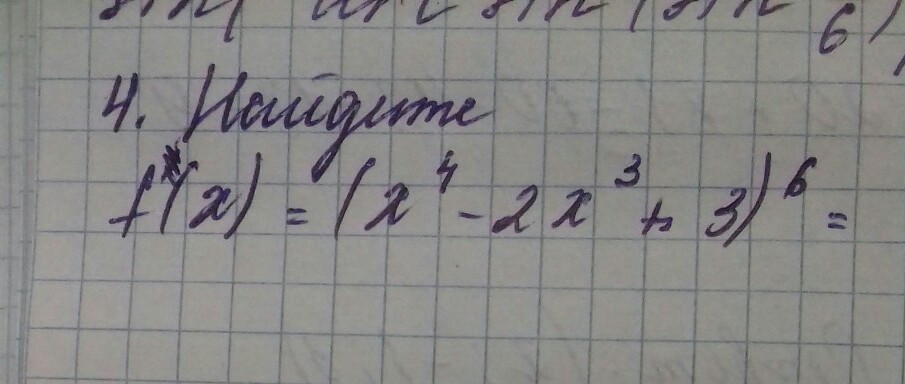 6)
4. Найдите
f'(x) = (x⁴ - 2x³ + 3)⁶ =